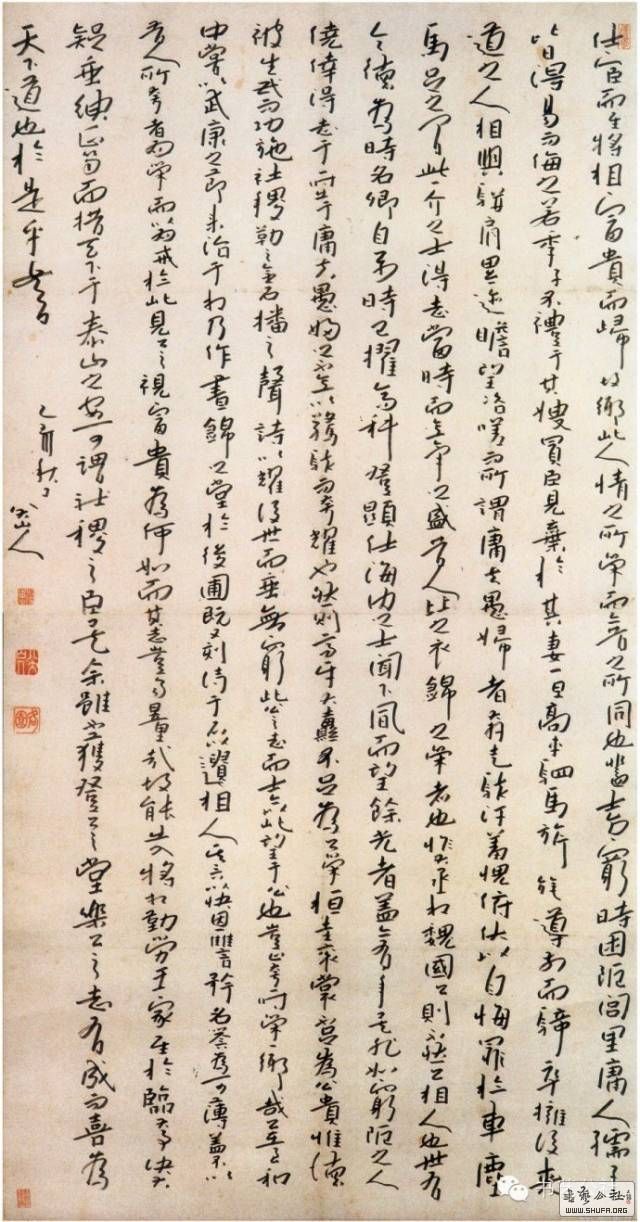 仕宦而至將相富貴而歸故鄉此人情之所榮而今昔之所同也蓋士方窮時困阨閭里庸人孺子
皆得易而侮之若季子不禮于其嫂買臣見棄於其妻一旦高車駟馬旗旄導前而騎卒擁後夾
道之人相與駢肩累迹瞻望咨嗟而所謂庸夫愚婦者奔走駭汗羞愧俯伏以自悔罪於車塵
馬足之間此一介之士得志當時而意氣之盛昔人比之衣錦之榮者也惟大丞相魏國公則不然公相人也世有
令德為時名卿自公少時已擢高科登顯仕海内之士聞下風而望餘光者蓋亦有年矣非如窮阨之人
僥倖得志于一時庸夫愚婦之意以驚駭而夸耀也然則高牙大纛不足為公榮桓圭袞裳不足為公貴惟德
被生民而功施社稷勒之金石播之聲詩以耀後世而垂無窮此公之志而士亦以此望于公也豈止夸一時榮一鄉哉公至和
中嘗以武康之節來治于相乃作晝錦之堂於後圃既又刻詩于石以遺相人其言以快恩讎矜名譽為可薄蓋不以
昔人所夸者為榮而以為戒於此見公之視富貴為何如而其志豈易量哉故能出入將相勤勞王家至於臨大事決大
疑垂紳正笏而措天下于泰山之安可謂社稷之臣矣余雖不獲登公之堂樂公之志有成而喜為
天下道也於是乎書
乙亥秋日 八大山人
書藝公社
WWW.SHUFA.ORG